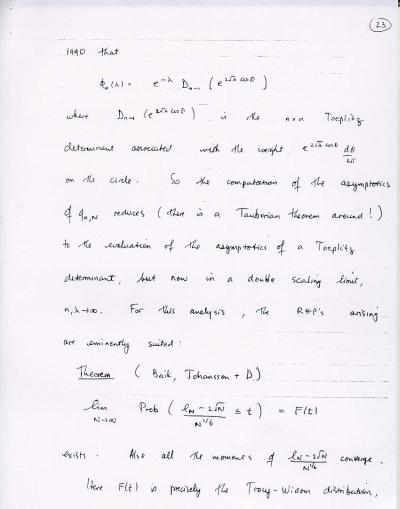 23
1990 that
ϕₙ(λ) = e^{-λ} D_{n-1} ( e^{2√λ cos θ} )
where D_{n-1} ( e^{2√λ cos θ} ) is the n×n Toeplitz
determinant associated with the weight e^{2√λ cos θ} dθ/2π
on the circle. So the computation of the asymptotics
of q_{n,N} reduces (there is a Tauberian theorem around!)
to the evaluation of the asymptotics of a Toeplitz
determinant, but now in a double scaling limit,
n, λ → ∞. For this analysis, the RHP's arising
are eminently suited:
Theorem ( Baik, Johansson + D.)
lim_{N→∞} Prob ( (l_N - 2√N)/N^{1/6} ≤ t ) = F(t)
exists. Also all the moments of (l_N - 2√N)/N^{1/6} converge.
Here F(t) is precisely the Tracy-Widom distribution,